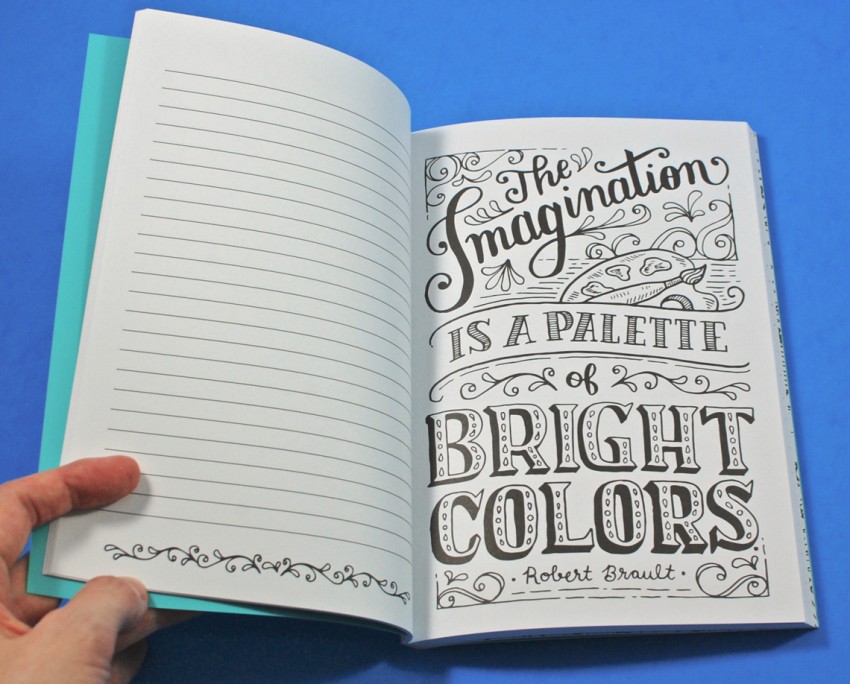 The
Imagination
IS A PALETTE
of
BRIGHT
COLORS.
· Robert Brault ·